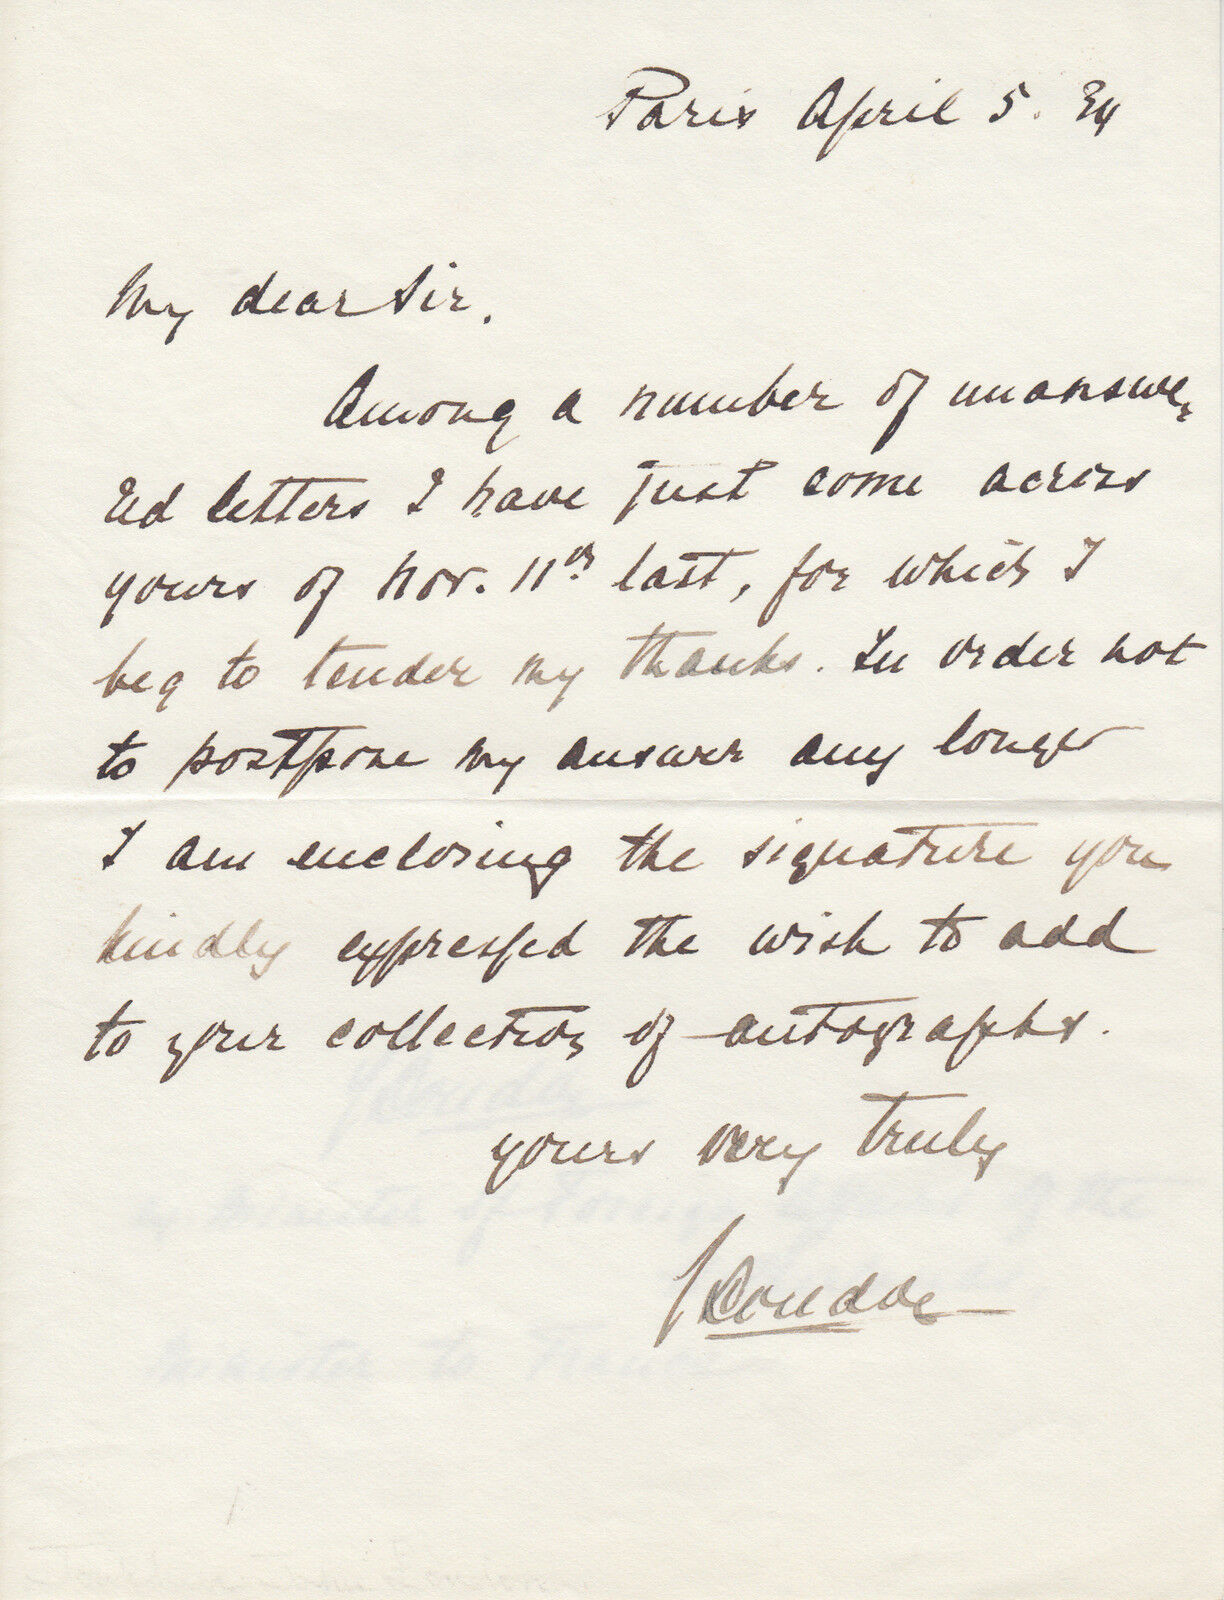 Paris April 5. 34
My dear Sir.
Among a number of unanswer
ed letters I have just come across
yours of Nov. 11th last, for which I
beg to tender my thanks. In order not
to postpone my answer any longer
I am enclosing the signature you
kindly expressed the wish to add
to your collection of autographs.
yours very truly